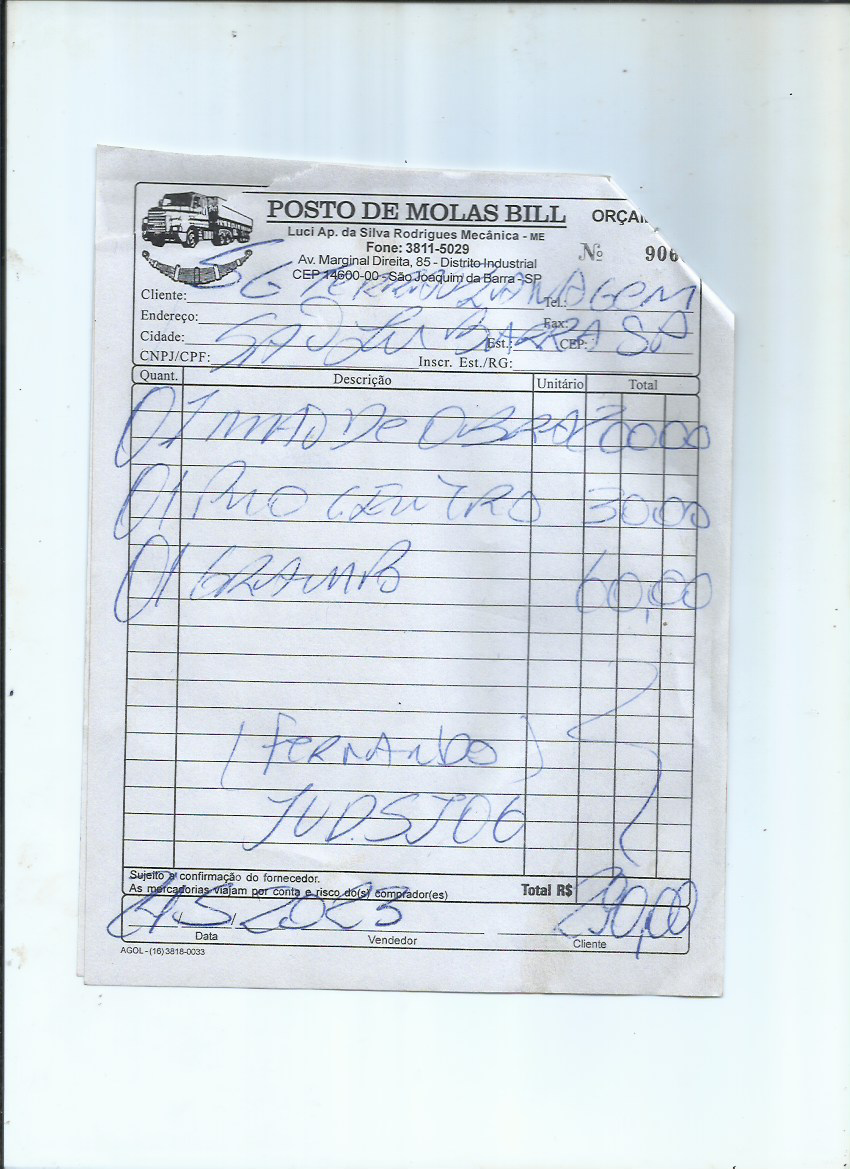 POSTO DE MOLAS BILL
ORÇAM
Luci Ap. da Silva Rodrigues Mecânica - ME
Fone: 3811-5029
Nº 906
Av. Marginal Direita, 85 - Distrito Industrial
CEP 14600-00 - São Joaquim da Barra - SP
Cliente: SG TERRAPLANAGEM Tel.:
Endereço: Fax:
Cidade: BARRA SP Est.: CEP:
CNPJ/CPF: Inscr. Est./RG:
Quant. Descrição Unitário Total
01 MÃO DE OBRA 200,00
01 PINO CENTRO 30,00
01 GRAMPO 60,00
(FERNANDO)
Sujeito a confirmação do fornecedor.
As mercadorias viajam por conta e risco do(s) comprador(es) Total R$ 290,00
5 2023
Data Vendedor Cliente
AGOL - (16) 3818-0033